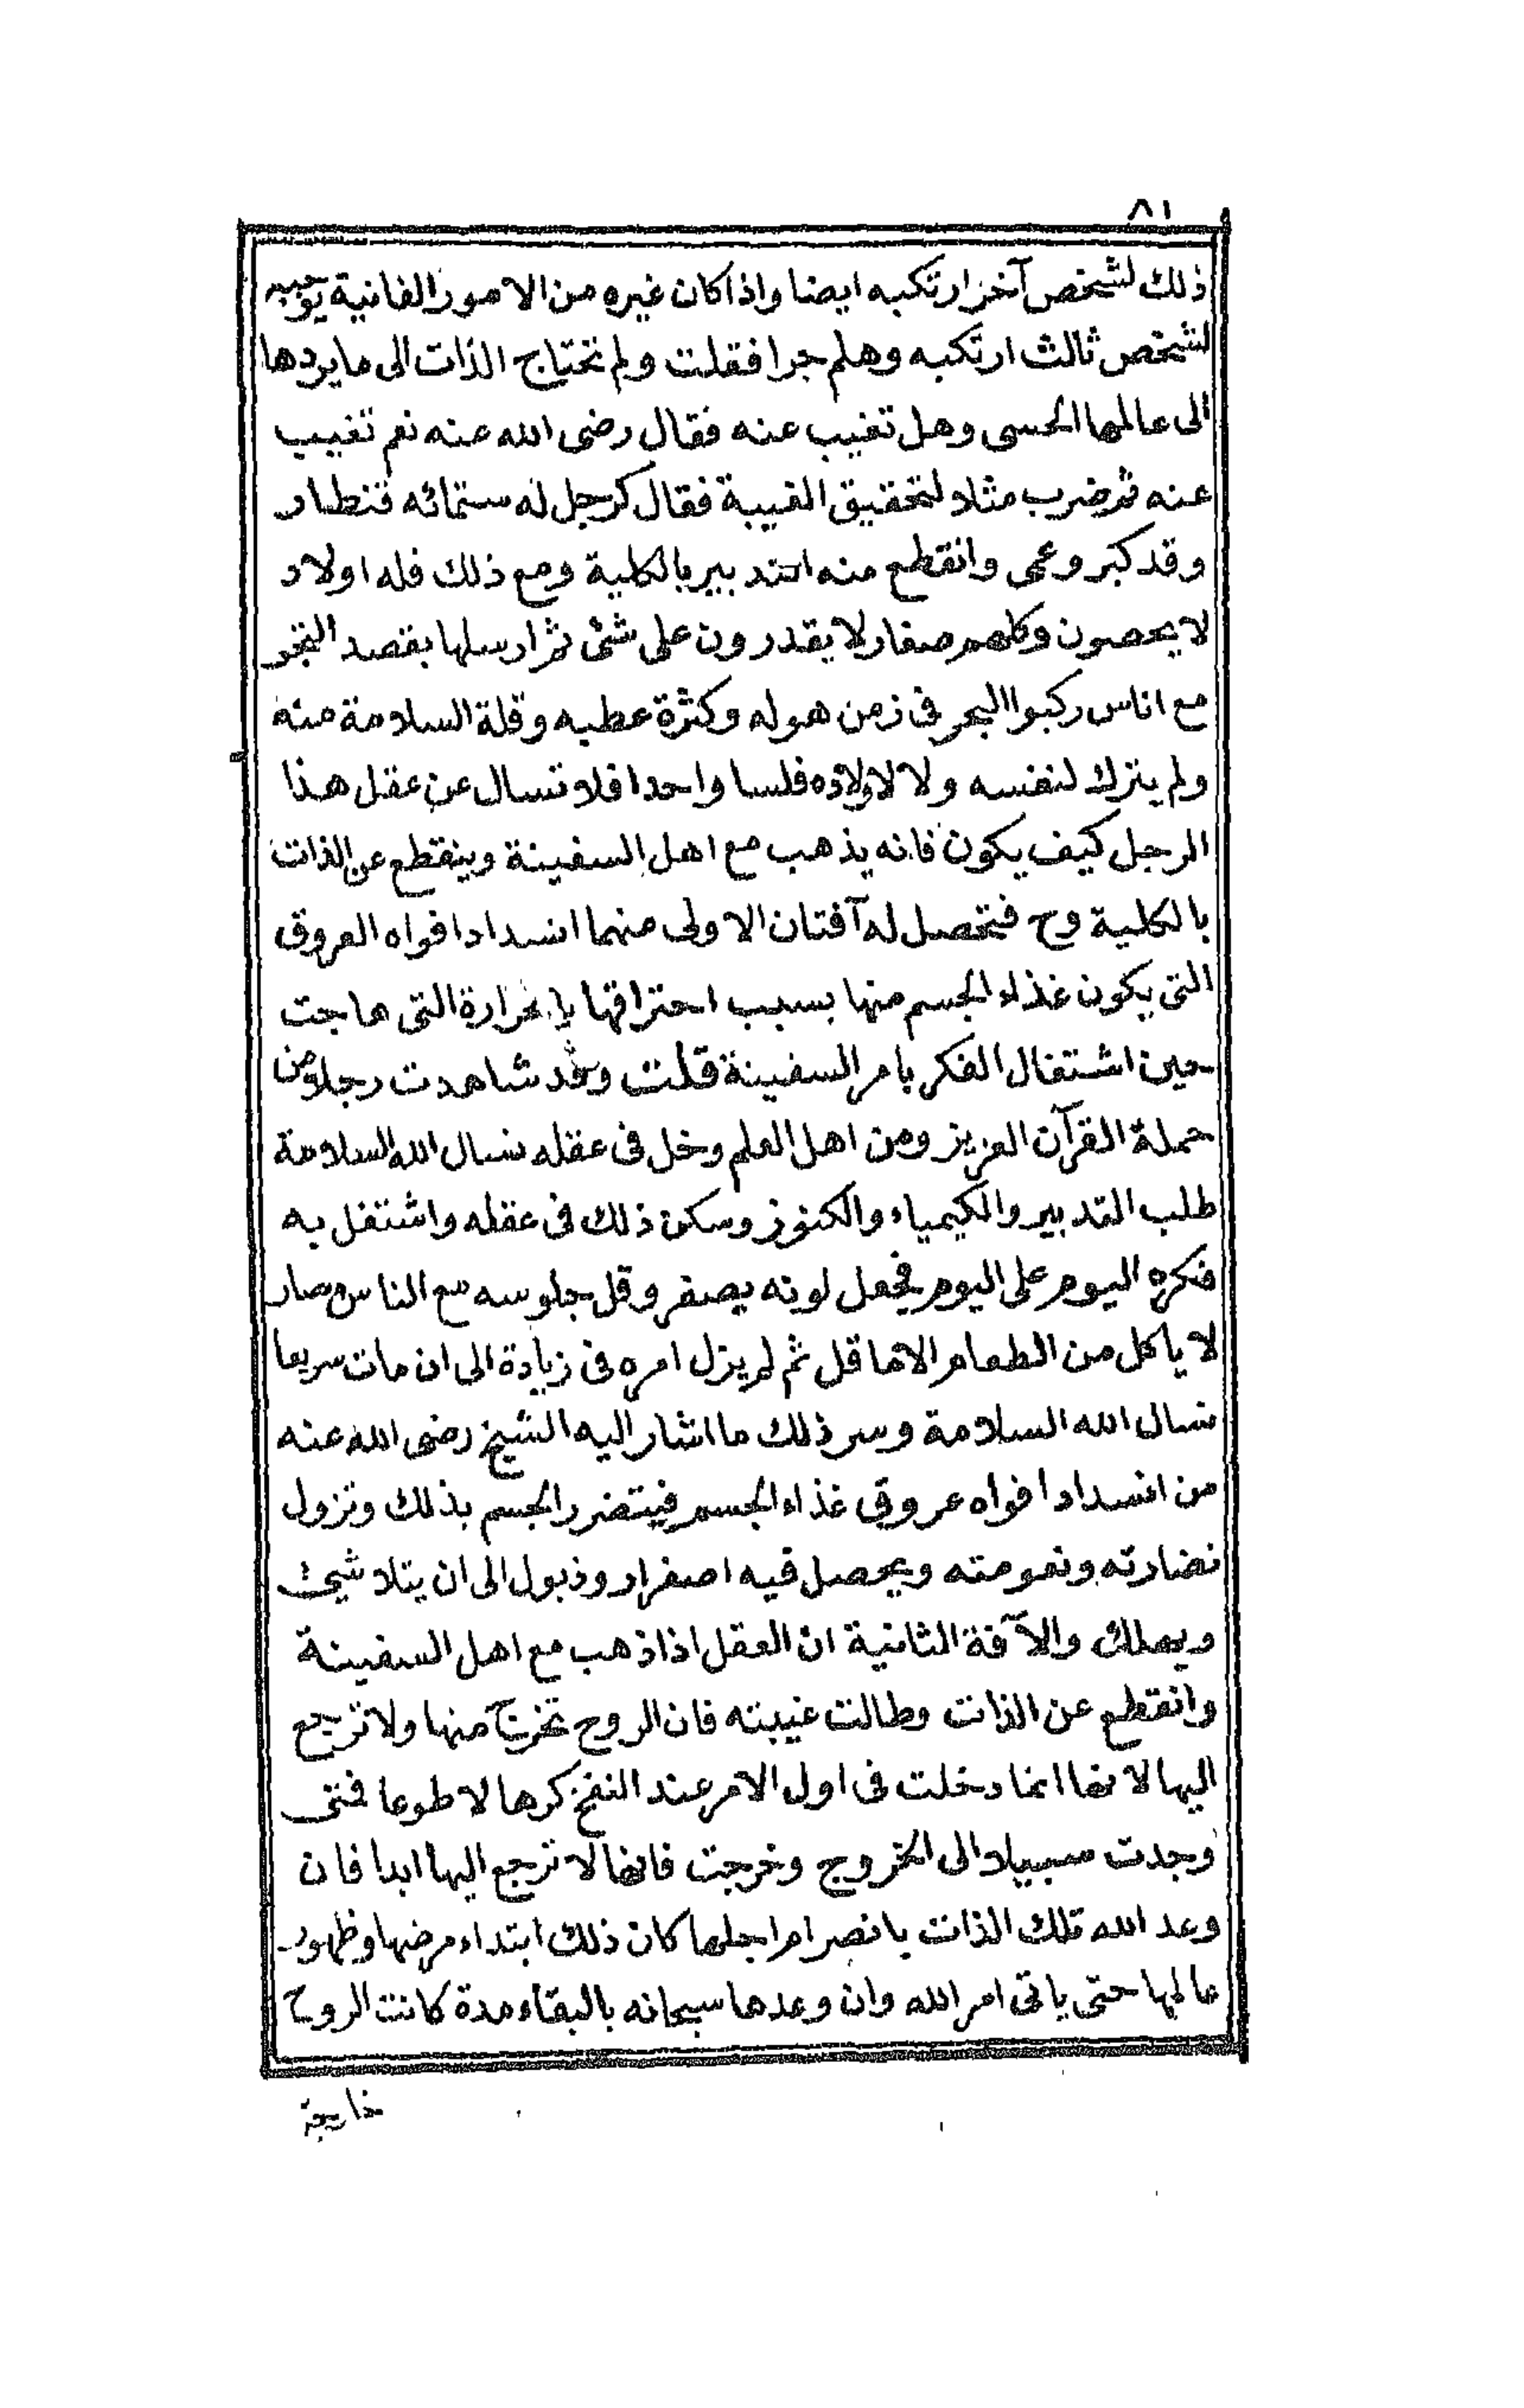 ٨١
ذلك لشخص آخر ارتكبه ايضا واذا كان غيره من الامور الفانية يوجبه
لشخص ثالث ارتكبه وهلم جرا فقلت ولم تحتاج الذات الى ما يردها
الى عالمها الحسى وهل تغيب عنه فقال رضى الله عنه نعم تغيب
عنه ثم ضرب مثلا لتحقيق الغيبة فقال كرجل له ستمائه قنطار
وقد كبر وعمى وانقطع منه التدبير بالكلية ومع ذلك فله اولاد
لا يحصون وكلهم صغار لا يقدرون على شئ ثم ارسلها بقصد التجر
مع اناس ركبوا البحر فى زمن هوله وكثرة عطبه وقلة السلامة منه
ولم يترك لنفسه ولا لاولاده فلسا واحدا فلا تسال عن عقل هذا
الرجل كيف يكون فانه يذهب مع اهل السفينة وينقطع عن الذات
بالكلية وح فتحصل له آفتان الاولى منهما انسداد افواه العروق
التى يكون غذاء الجسم منها بسبب احتراقها بالحرارة التى هاجت
حين اشتغال الفكر بامر السفينة قلت وقد شاهدت رجلا من
حملة القرآن العزيز ومن اهل العلم دخل فى عقله نسال الله السلامة
طلب التدبير والكيمياء والكنوز وسكن ذلك فى عقله واشتغل به
فكره اليوم على اليوم فجعل لونه يصفر وقل جلوسه مع الناس وصار
لا ياكل من الطعام الا ما قل ثم لم يزل امره فى زيادة الى ان مات سريعا
نسال الله السلامة وسر ذلك ما اشار اليه الشيخ رضى الله عنه
من انسداد افواه عروق غذاء الجسم فيتضرر الجسم بذلك وتزول
نضارته ونعومته ويحصل فيه اصفرار وذبول الى ان يتلاشى
ويهلك والآفة الثانية ان العقل اذا ذهب مع اهل السفينة
وانقطع عن الذات وطالت غيبته فان الروح تخرج منها ولا ترجع
اليها لانها انما دخلت فى اول الامر عند النفخ كرها لا طوعا فمتى
وجدت سبيلا الى الخروج وخرجت فانها لا ترجع اليها ابدا فان
وعد الله تلك الذات بانصرام اجلها كان ذلك ابتداء مرضها وظهور
عالها حتى ياتى امر الله وان وعدها سبحانه بالبقاء مدة كانت الروح
خارجة